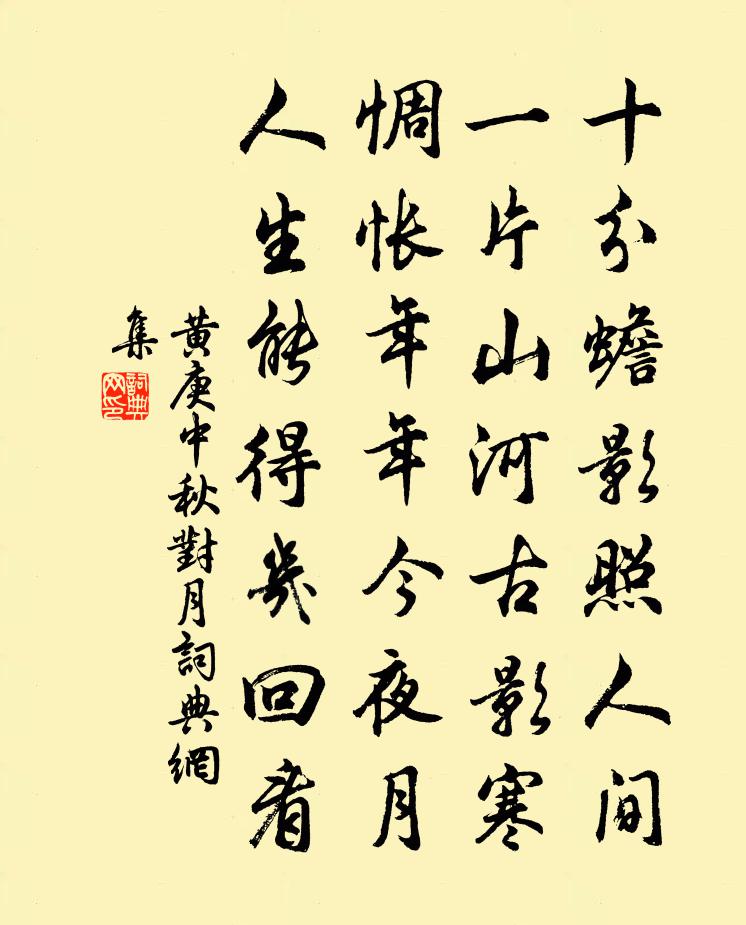 十分蟾影照人间
一片山河古影寒
惆怅年年今夜月
人生能得幾回看
黄庚中秋對月詞典網
集
詞典网印